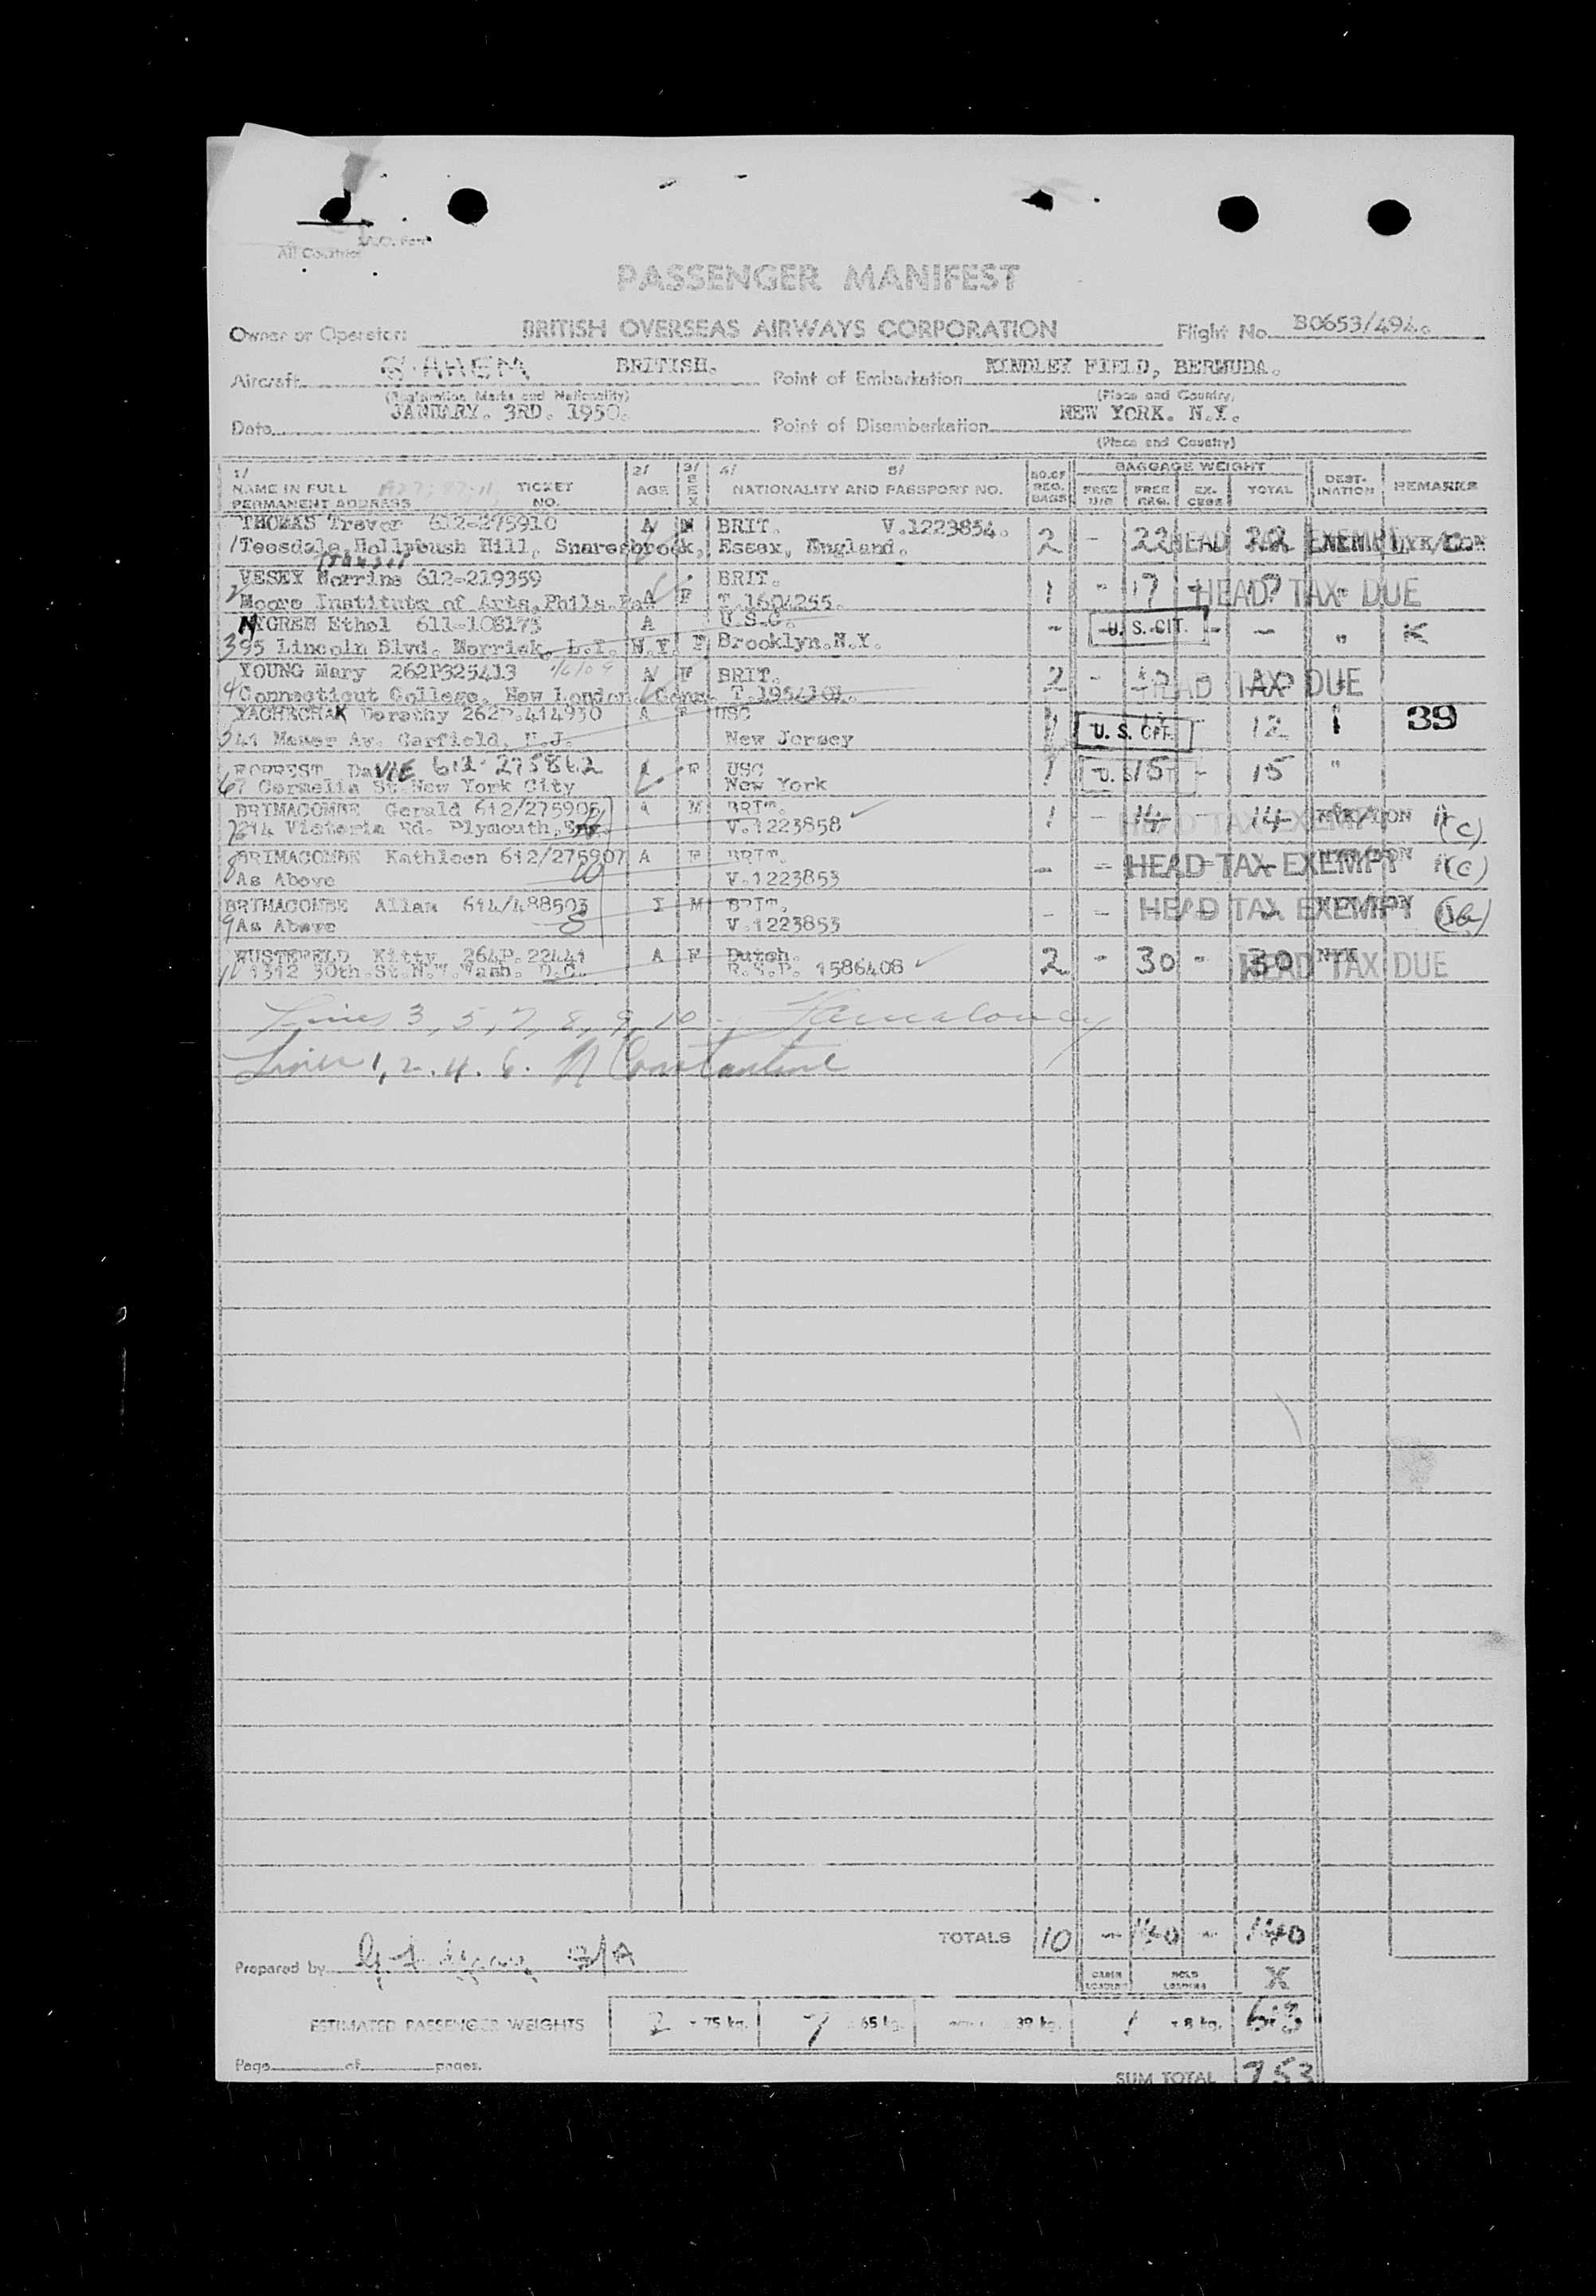 All Countries
PASSENGER MANIFEST
Owner or Operator: BRITISH OVERSEAS AIRWAYS CORPORATION Flight No. B0653/494.
Aircraft G-AHEM BRITISH. Point of Embarkation KINDLEY FIELD, BERMUDA.
(Registration Marks and Nationality) (Place and Country)
Date JANUARY. 3RD. 1950. Point of Disembarkation NEW YORK. N.Y.
(Place and Country)
1/ NAME IN FULL PERMANENT ADDRESS TICKET NO. 2/ AGE 3/ SEX 4/ 5/ NATIONALITY AND PASSPORT NO. NO. OF REG. BAGS BAGGAGE WEIGHT FREE REG. EX-CESS TOTAL DEST-INATION REMARKS
THOMAS Trevor 612-275910 A M BRIT. V.1223854.
1 Teesdale, Hollybush Hill, Snaresbrook, Essex, England. 2 - 22 HEAD TAX EXEMPT 22
Transit
VESEY Norrine 612-219359 BRIT.
2 Moore Institute of Arts, Phila. Pa. A F T.1604255. 1 - 17 - 17 " HEAD TAX DUE
NYGREN Ethel 611-108173 A U.S.C.
395 Lincoln Blvd. Merrick, L.I. N.Y. F Brooklyn. N.Y. - U. S. CIT. - - " K
YOUNG Mary 262P325413 A F BRIT.
4 Connecticut College, New London, Conn. 2 - HEAD TAX DUE
YACHECHAK Dorothy 262P.414930 A F USC
5 41 New Jersey 1 U. S. CIT. - 12 39
FORREST DaVIE 612-275862 A F USC
67 Cornelia St. New York City New York 1 U. S. CIT. 15 - 15 "
BRIMACOMBE Gerald 612/275906 A M BRIT.
7 214 Victoria Rd. Plymouth, Eng. V.1223858 1 - 14 - 14 HEAD TAX EXEMPT NYK/LON (C)
BRIMACOMBE Kathleen 612/275907 A F BRIT.
8 As Above V.1223853 - - HEAD TAX EXEMPT NYK/LON (C)
BRIMACOMBE Allan 614/488503 I M BRIT.
9 As Above V.1223853 - - HEAD TAX EXEMPT NYK/LON
Kitty 264P.22441 A F Dutch.
1312 30th.St.N.W.Wash. D.C. 1586408 2 - 30 - 30 NYK HEAD TAX DUE
Lines 3, 5, 7, 8, 9, 10 -
Lines 1, 2. 4. 6. N Constantine
TOTALS 10 - 140 - 140
Prepared by
CABIN LOADING HOLD LOADING X
ESTIMATED PASSENGER WEIGHTS 2 - 75 kg. 7 65 kg. 39 kg. 1 - 8 kg. 613
Page of pages.
SUM TOTAL 753